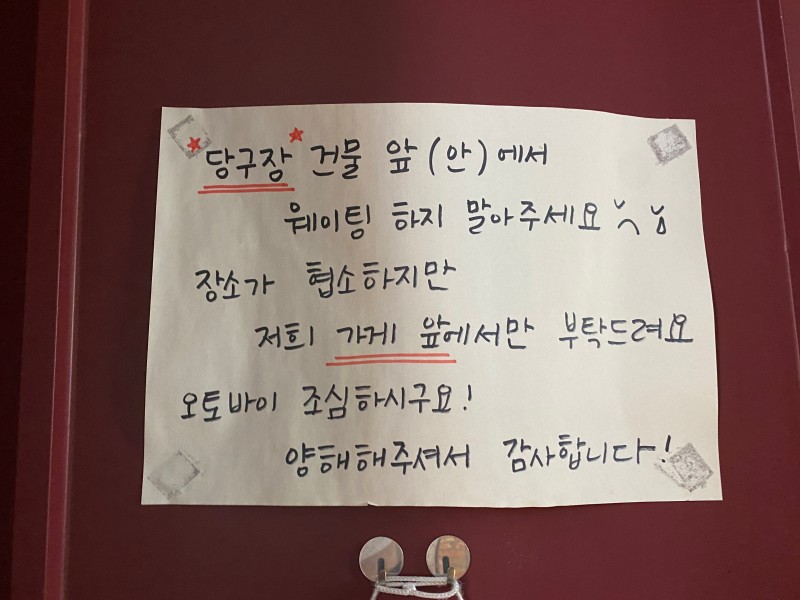 *당구장* 건물 앞 (안)에서
웨이팅 하지 말아주세요 ㅠㅠ
장소가 협소하지만
저희 가게 앞에서만 부탁드려요
오토바이 조심하시구요!
양해해주셔서 감사합니다!